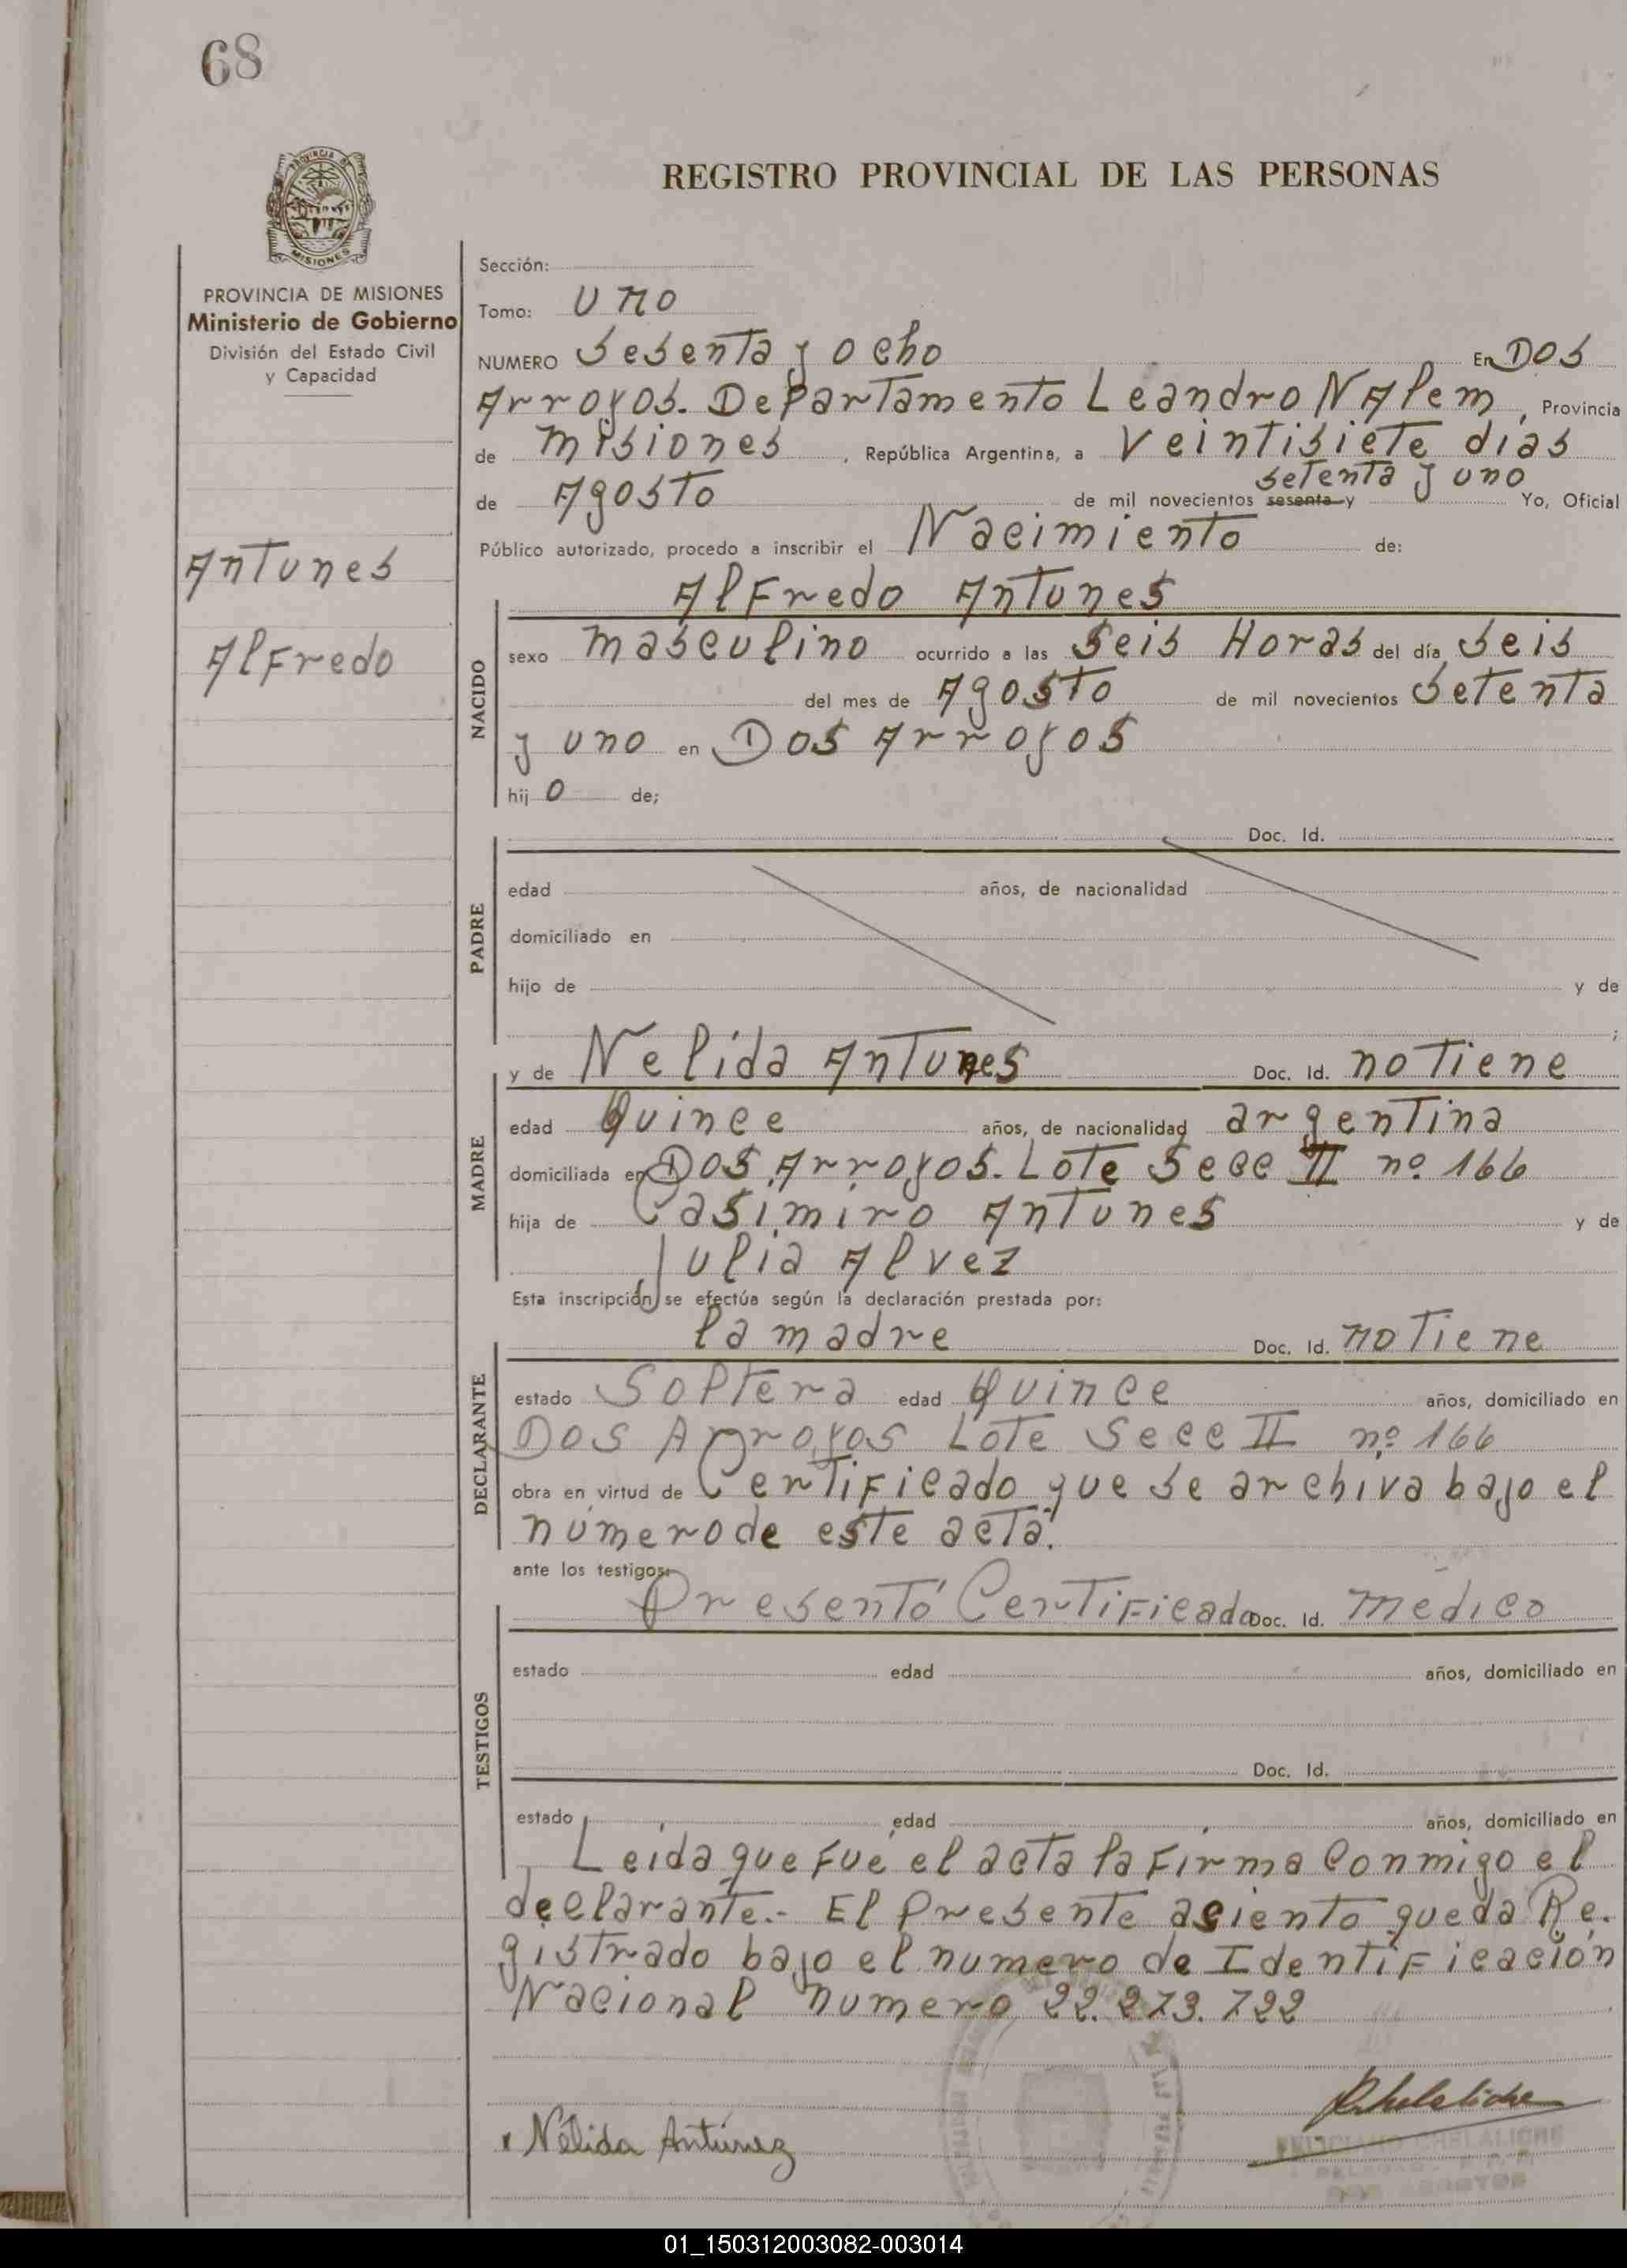 68
PROVINCIA DE
MISIONES
REGISTRO PROVINCIAL DE LAS PERSONAS
PROVINCIA DE MISIONES
Ministerio de Gobierno
División del Estado Civil
y Capacidad
Antunes
Alfredo
Sección:
Tomo: uno
NUMERO Sesenta y ocho En Dos
Arroyos. Departamento Leandro N Alem, Provincia
de Misiones, República Argentina, a Veintisiete días
setenta y uno
de Agosto de mil novecientos sesenta y Yo, Oficial
Público autorizado, procedo a inscribir el Nacimiento de:
Alfredo Antunes
NACIDO
sexo masculino ocurrido a las Seis Horas del día Seis
del mes de Agosto de mil novecientos Setenta
y uno en Dos Arroyos
hij o de;
PADRE
Doc. Id.
edad años, de nacionalidad
domiciliado en
hijo de y de
;
MADRE
y de Nelida Antunes Doc. Id. no Tiene
edad Quince años, de nacionalidad argentina
domiciliada en Dos Arroyos. Lote Secc II nº 166
hija de Casimiro Antunes y de
Julia Alvez
Esta inscripción se efectúa según la declaración prestada por:
la madre Doc. Id. no Tiene
DECLARANTE
estado Soltera edad Quince años, domiciliado en
Dos Arroyos Lote Secc II nº 166
obra en virtud de Certificado que se archiva bajo el
número de este acta.
ante los testigos:
Presentó Certificado Doc. Id. médico
TESTIGOS
estado edad años, domiciliado en
Doc. Id.
estado edad años, domiciliado en
Leída que fué el acta la firma conmigo el
declarante.- El presente asiento queda Re-
gistrado bajo el numero de Identificación
Nacional numero 22.273.722
Nélida Antúnez
FELICIANO CHELALICHE
01_150312003082-003014